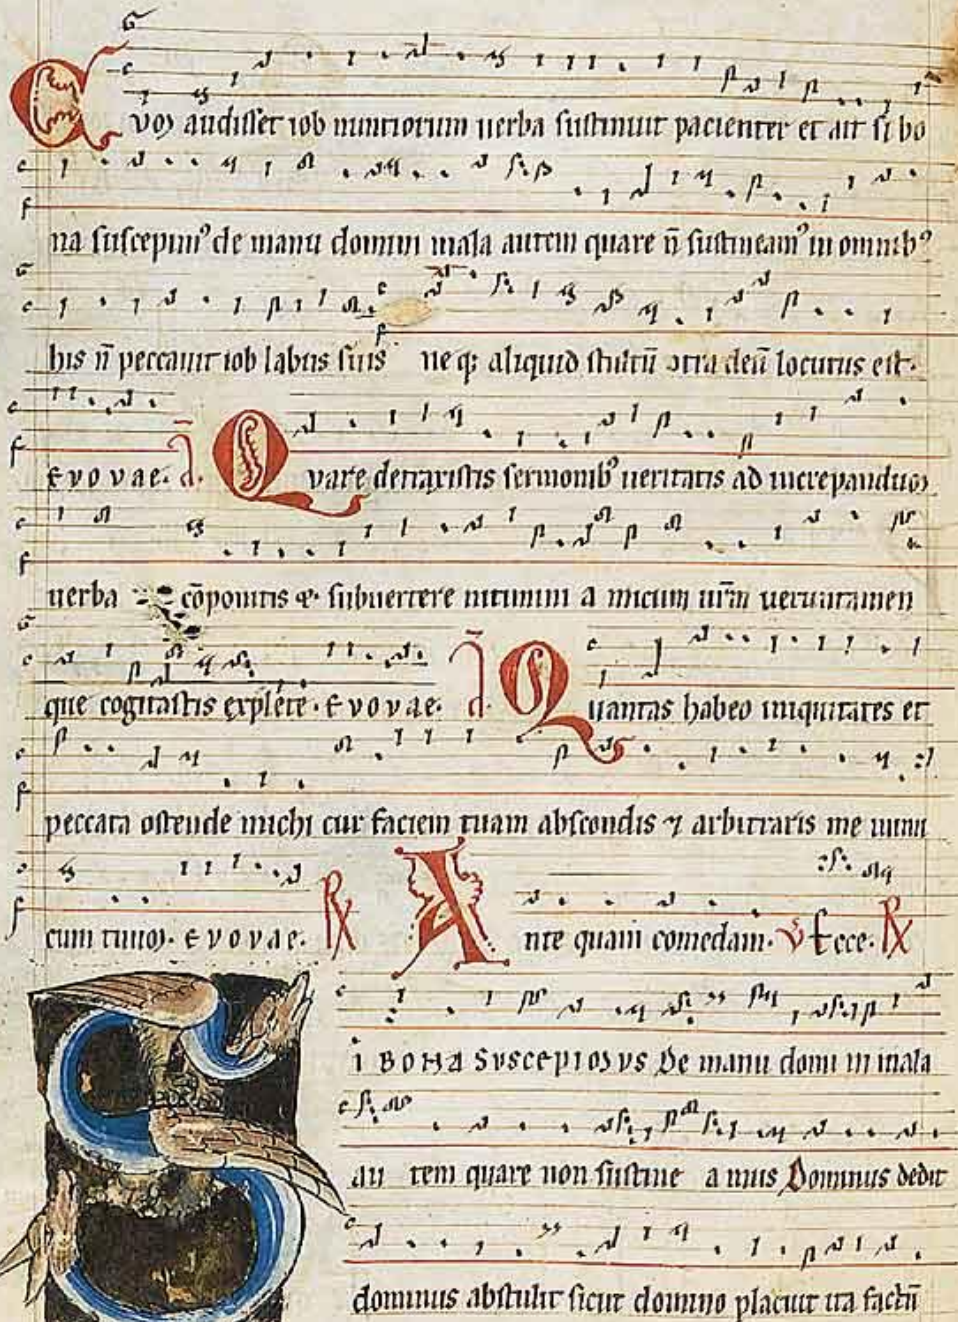 Cuoɔ audisset iob nuntiorum uerba sustinuit pacienter et ait si bo
na suscepim⁹ de manu domini mala autem quare n̄ sustineam⁹ in omnib⁹
his n̄ peccauit iob labiis suis ne qꝫ aliquid stultū ↄtra deū locutus est.
EVOVAE. a. Quare detraxistis sermonib⁹ ueritatis ad increpanduɔ
uerba cōponitis subuertere nitimini a micum ur̄m ueruntamen
que cogitastis explete. EVOVAE. a. Quantas habeo iniquitates et
peccata ostende michi cur faciem tuam abscondis ⁊ arbitraris me inimi
cum tuuɔ. EVOVAE. ℟ Ante quam comedam. V Ecce. ℟
SI BONA SVSCEPIMVS De manu domi ni mala
au tem quare non sustine a mus Dominus dedit
dominus abstulit sicut domino placuit ita factū